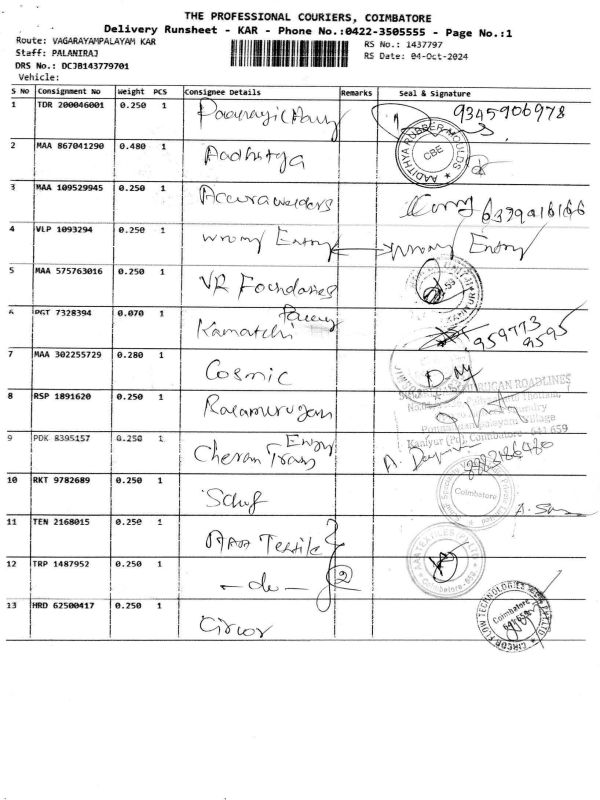 THE PROFESSIONAL COURIERS, COIMBATORE
Delivery Runsheet - KAR - Phone No.:0422-3505555 - Page No.:1
Route: VAGARAYAMPALAYAM KAR
RS No.: 1437797
Staff: PALANIRAJ
RS Date: 04-Oct-2024
DRS No.: DCJB143779701
Vehicle:
S No Consignment No Weight PCS Consignee Details Remarks Seal & Signature
1 TDR 200046001 0.250 1 9345906978
2 MAA 867041290 0.480 1 Aadhitya AADITHYA RUBBER MOULDS CBE
3 MAA 109529945 0.250 1 Accurawelders 6379916166
4 VLP 1093294 0.250 1 wrong Entry wrong Entry
5 MAA 575763016 0.250 1 VR Foundaries
6 PGT 7328394 0.070 1 Kamatchi 959773 9595
7 MAA 302255729 0.280 1 Cosmic
8 RSP 1891620 0.250 1 Balamurugan ROADLINES
Kaniyur (Po), Coimbatore - 641 659
9 PDK 8395157 0.250 1 Cheran Trans 8883186480
10 RKT 9782689 0.250 1 Schuf Coimbatore
11 TEN 2168015 0.250 1 AAA Textile
12 TRP 1487952 0.250 1 - do - 2 Coimbatore-659
13 HRD 62500417 0.250 1 Circor CIRCOR FLOW TECHNOLOGIES Coimbatore